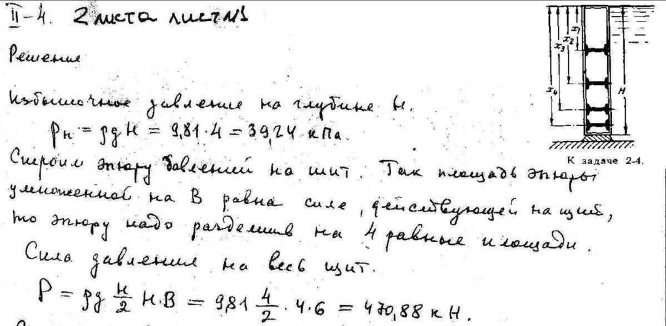 II-4. 2 листа лист №1
Решение
Избыточное давление на глубине H.
pн = ρgH = 9,81·4 = 39,24 кПа.
Строим эпюру давлений на щит. Так площадь эпюры
умноженной на B равна силе, действующей на щит,
то эпюру надо разделив на 4 равные площади.
Сила давления на весь щит.
P = ρg H/2 H·B = 9,81 4/2 ·4·6 = 470,88 кН.
x1
x2
x3
x4
H
К задаче 2-4.